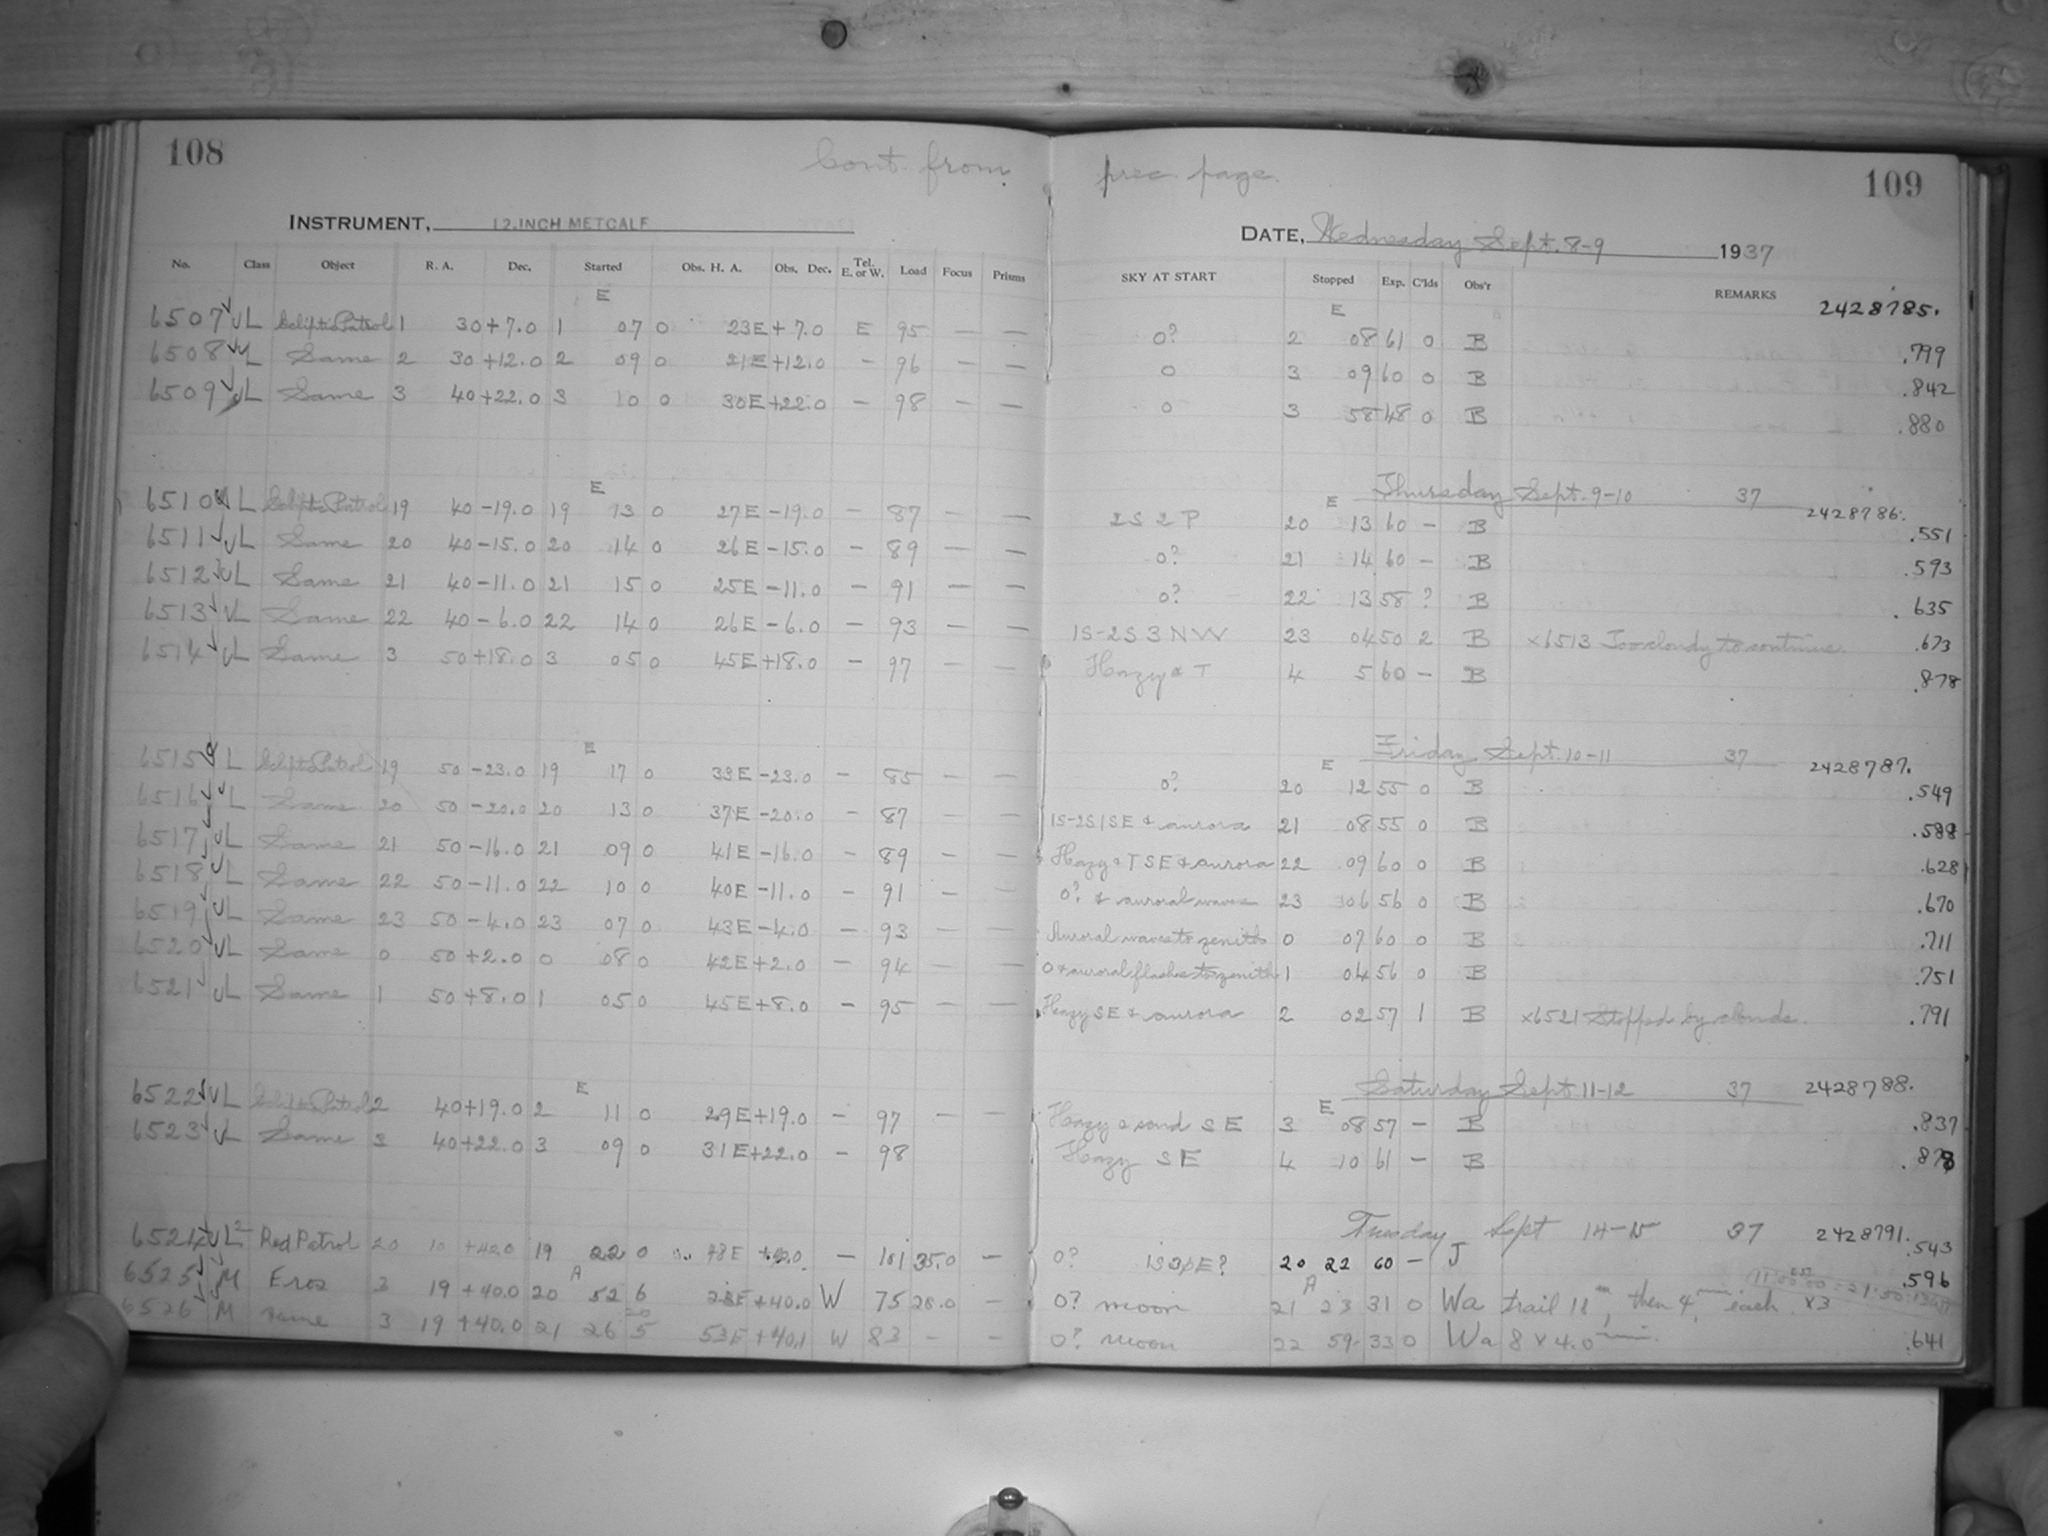 108
Cont. from prec. page.
109
INSTRUMENT, 12-INCH METCALF
DATE, Wednesday Sept. 8-9 1937
No. Class Object R. A. Dec. Started Obs. H. A. Obs. Dec. Tel. E. or W. Load Focus Prisms SKY AT START Stopped Exp. C'lds Obs'r REMARKS
E E 2428785.
6507 L Ecliptic Patrol 1 30 +7.0 1 07 0 23E +7.0 E 95 — — 0? 2 08 61 0 B .799
6508 L Same 2 30 +12.0 2 09 0 21E +12.0 - 96 — — 0 3 09 60 0 B .842
6509 L Same 3 40 +22.0 3 10 0 30E +22.0 - 98 — — 0 3 58 48 0 B .880
Thursday Sept. 9-10 37
E E 2428786.
6510 L Ecliptic Patrol 19 40 -19.0 19 13 0 27E -19.0 - 87 — — 2S 2P 20 13 60 - B .551
6511 L Same 20 40 -15.0 20 14 0 26E -15.0 - 89 — — 0? 21 14 60 - B .593
6512 L Same 21 40 -11.0 21 15 0 25E -11.0 - 91 — — 0? 22 13 58 ? B .635
6513 L Same 22 40 -6.0 22 14 0 26E -6.0 - 93 — — 1S-2S 3 NW 23 04 50 2 B x6513 Too cloudy to continue. .673
6514 L Same 3 50 +18.0 3 05 0 45E +18.0 - 97 — — Hazy & T 4 5 60 - B .878
Friday Sept. 10-11 37
E E 2428787.
6515 L Ecliptic Patrol 19 50 -23.0 19 17 0 33E -23.0 - 85 — — 0? 20 12 55 0 B .549
6516 L Same 20 50 -20.0 20 13 0 37E -20.0 - 87 — — 1S-2S1SE & aurora 21 08 55 0 B .588
6517 L Same 21 50 -16.0 21 09 0 41E -16.0 - 89 — — Hazy & T SE & aurora 22 09 60 0 B .628
6518 L Same 22 50 -11.0 22 10 0 40E -11.0 - 91 — — 0? & auroral waves 23 06 56 0 B .670
6519 L Same 23 50 -4.0 23 07 0 43E -4.0 - 93 — — Auroral waves to zenith 0 07 60 0 B .711
6520 L Same 0 50 +2.0 0 08 0 42E +2.0 - 94 — — 0 & auroral flashes to zenith 1 04 56 0 B .751
6521 L Same 1 50 +8.0 1 05 0 45E +8.0 - 95 — — Hazy SE & aurora 2 02 57 1 B x6521 Stopped by clouds. .791
Saturday Sept. 11-12 37
E E 2428788.
6522 L Ecliptic Patrol 2 40 +19.0 2 11 0 29E +19.0 - 97 — — Hazy SE 3 08 57 - B .837
6523 L Same 3 40 +22.0 3 09 0 31E +22.0 - 98 Hazy SE 4 10 61 - B .878
Tuesday Sept 14-15 37 2428791.
6524 L Red Patrol 20 10 +42.0 19 22 0 E — 101 35.0 — 0? 20 22 60 - J .543
A A
6525 M Eros 3 19 +40.0 20 52 6 +40.0 W 75 28.0 — 0? moon 21 23 31 0 Wa trail 11m, then 4min each x3 .596
6526 M same 3 19 +40.0 21 26 5 53E +40.1 W 83 - - 0? moon 22 59 33 0 Wa 8 x 4.0min. .641